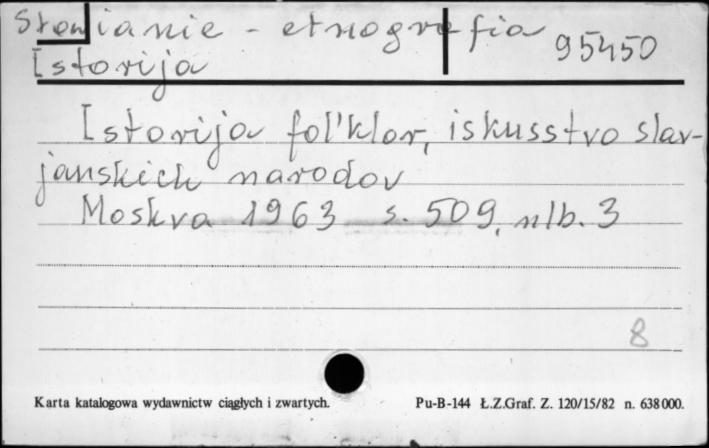 Słowianie - etnografia
95450
Istorija
Istorija fol'klor, iskusstvo slav-
janskich narodov
Moskva 1963 s. 509, nlb. 3
8
Karta katalogowa wydawnictw ciągłych i zwartych.
Pu-B-144 Ł.Z.Graf. Z. 120/15/82 n. 638000.